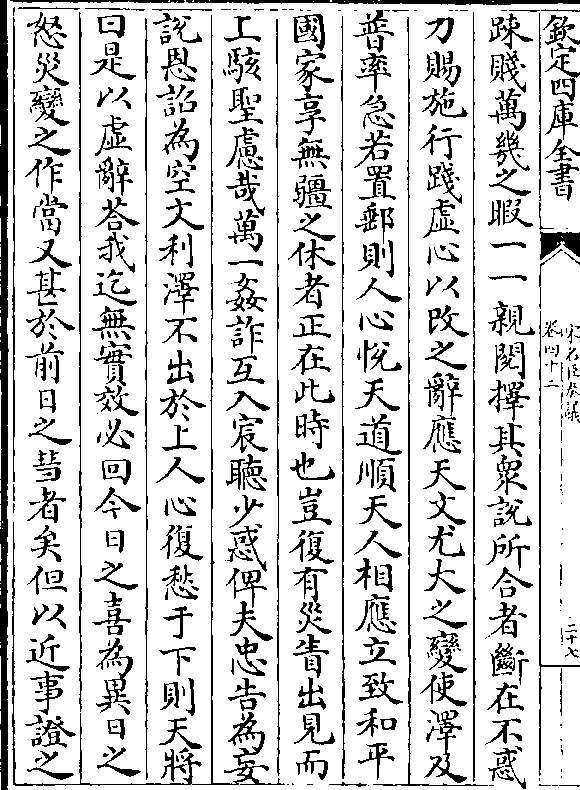 欽定四庫全書
宋名臣奏議
卷四十二
二十七
踈賤萬幾之暇一一親閱擇其衆説所合者斷在不惑
刀賜施行踐虚心以改之辭應天文尤大之變使澤及
普率急若置郵則人心悦天道順天人相應立致和平
國家享無疆之休者正在此時也豈復有災眚出見而
上駭聖慮哉萬一姦詐互入宸聽少惑俾夫忠告為妄
説恩詔為空文利澤不出於上人心復愁于下則天將
曰是以虚辭荅我迄無實效必回今日之喜為異日之
怒災變之作當又甚於前日之眚者矣但以近事證之